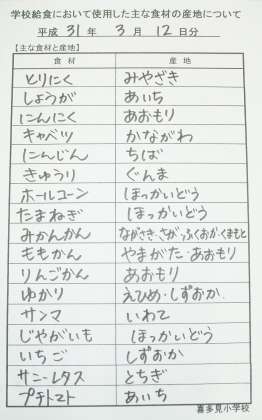 学校給食において使用した主な食材の産地について
平成 31 年 3 月 12 日分
【主な食材と産地】
食材 産地
とりにく みやざき
しょうが あいち
にんにく あおもり
キャベツ かながわ
にんじん ちば
きゅうり ぐんま
ホールコーン ほっかいどう
たまねぎ ほっかいどう
みかんかん ながさき・さが・ふくおか・くまもと
ももかん やまがた・あおもり
りんごかん あおもり
ゆかり えひめ・しずおか
サンマ いわて
じゃがいも ほっかいどう
いちご しずおか
サニーレタス とちぎ
プチトマト あいち
喜多見小学校